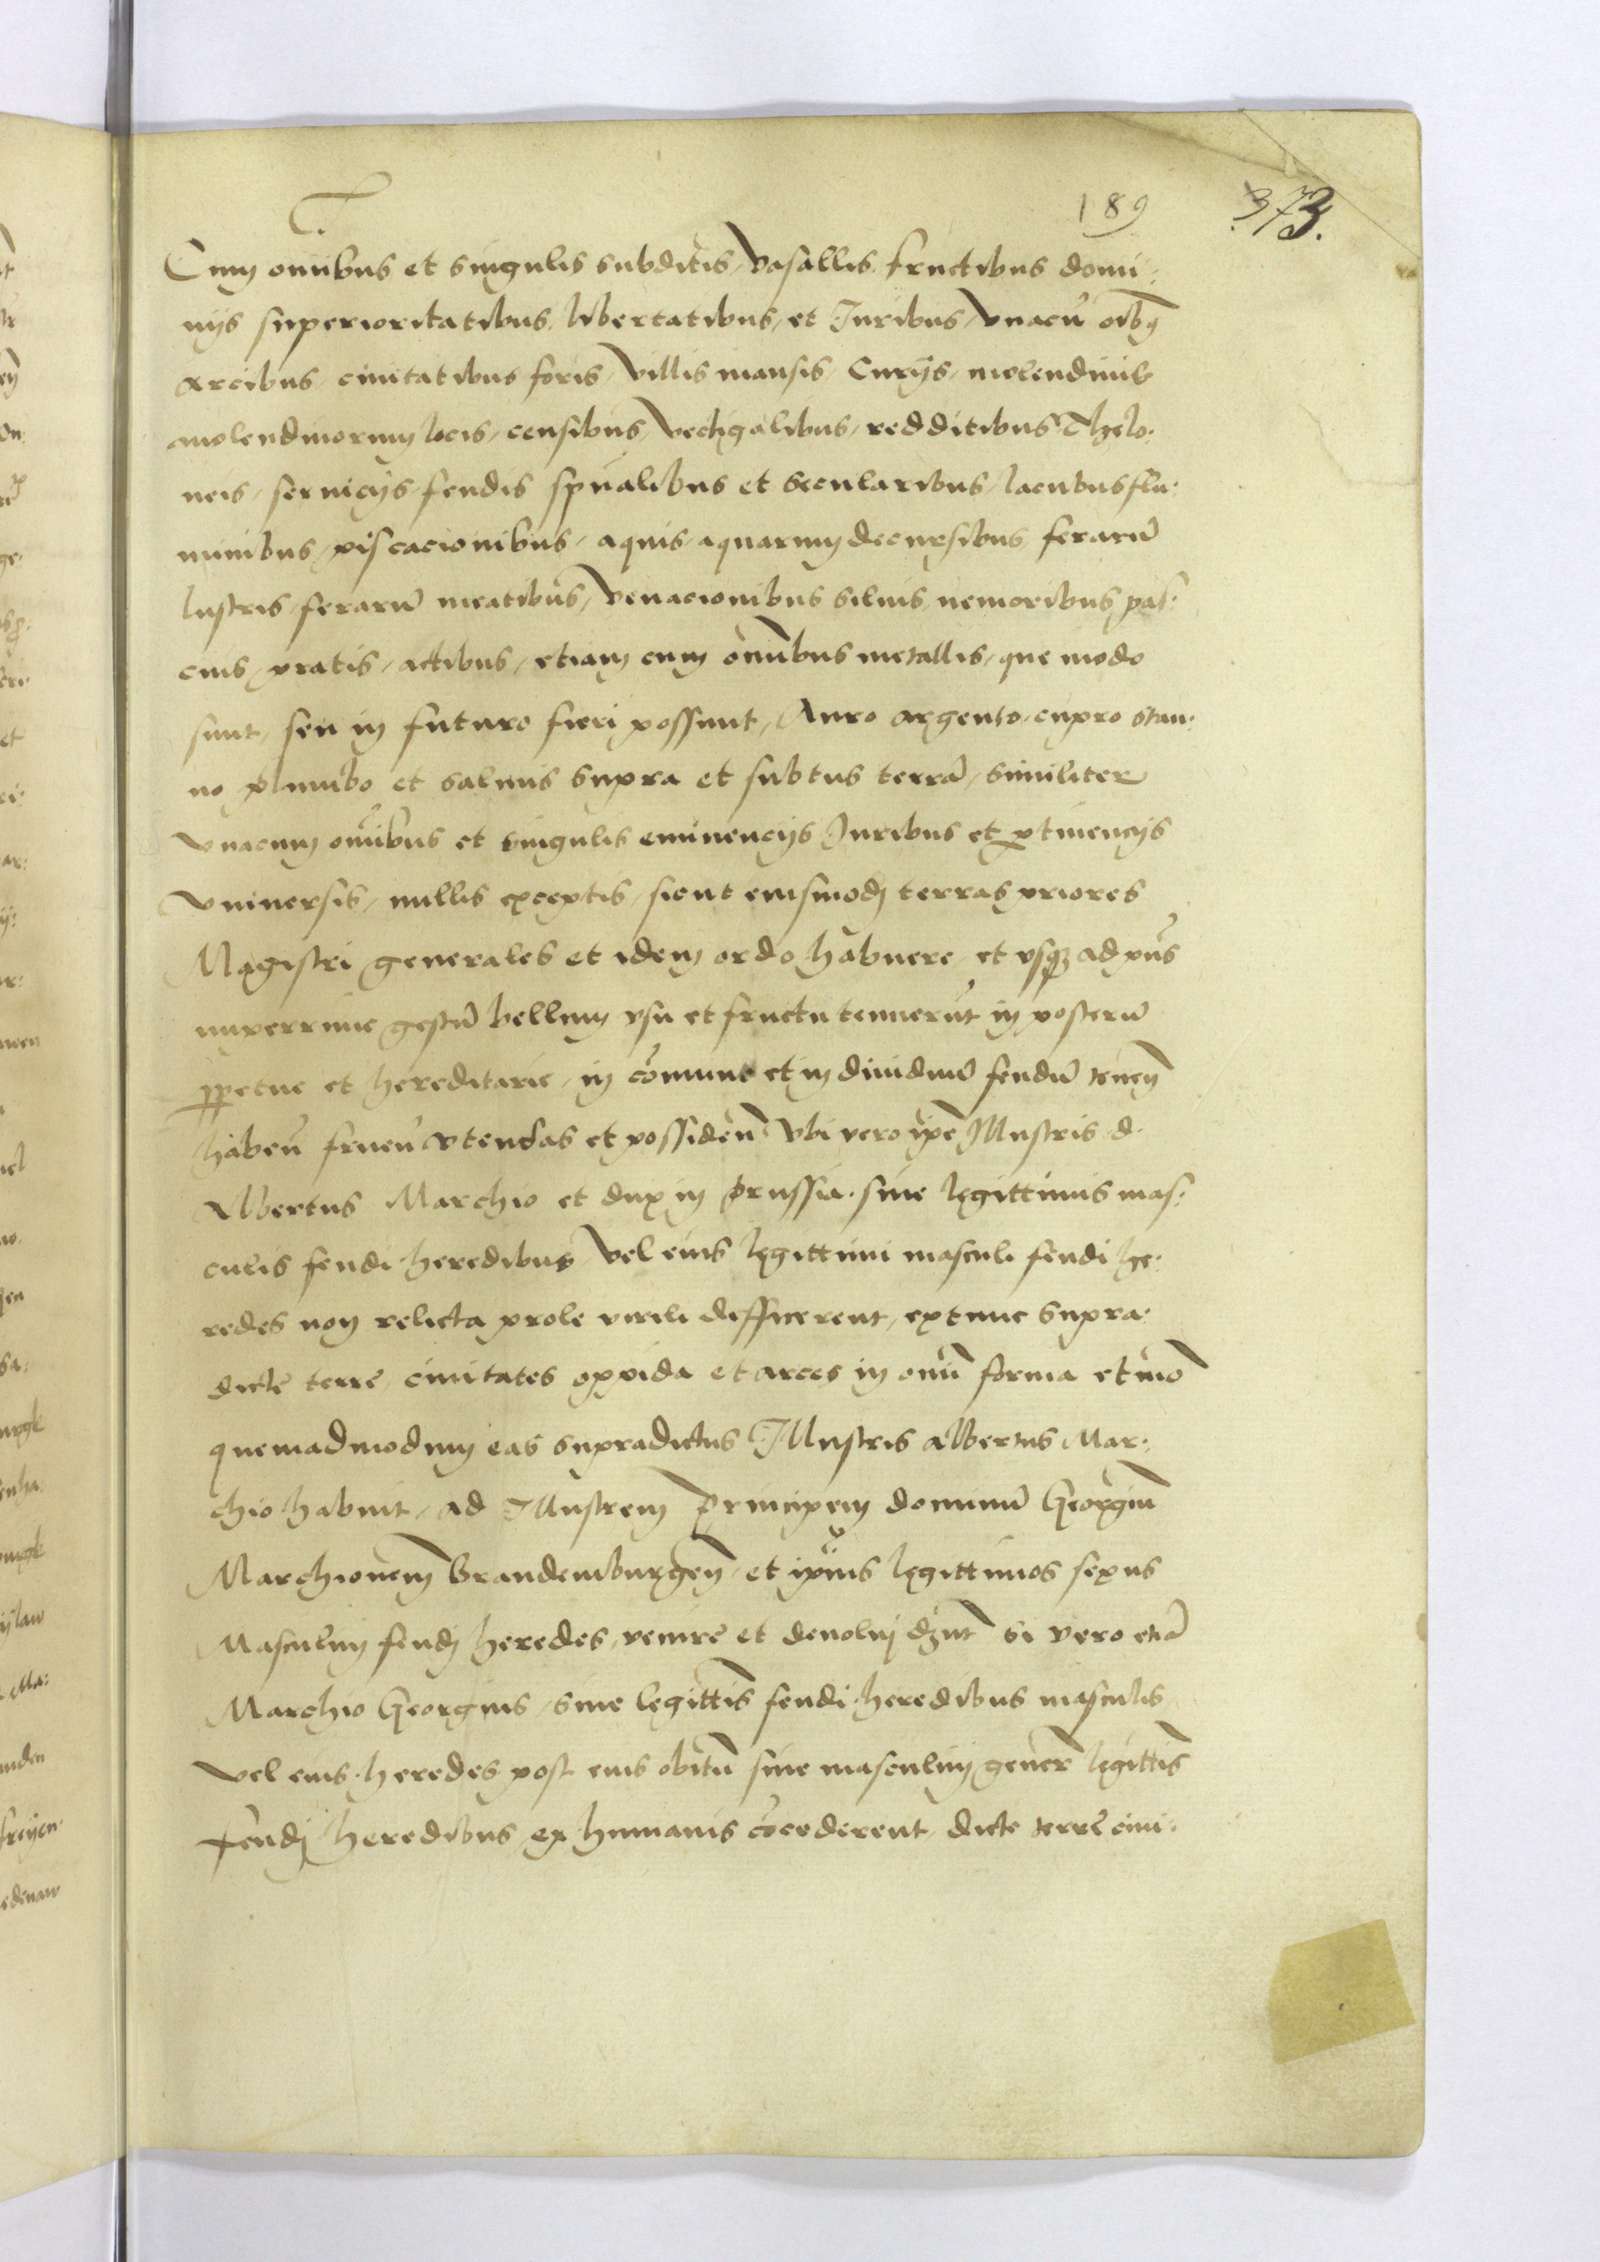 T.
189 373.
Cum omībus et singulis subditis, Vasallis, fructibus domi-
nijs superioritatibus, libertatibus, et Juribus, Vnacū oībȝ
arcibus, ciuitatibus foris, Villis mansis, Curijs, molendinis
molendinorum locis, censibus, Vectigalibus, redditibus Thelo-
neis, seruicijs, feudis spūalibus et secularibus, lacubus flu-
minibus, piscacionibus, aquis, aquarum decursibus, ferarū
lustris, ferarū meatibus, Venacionibus siluis, nemoribus pas-
cuis, pratis, actibus, etiam cum omībus metallis, que modo
sunt, seu in futuro fieri possunt, Auro argento, cupro stan-
no plumbo et salinis supra et subtus terrā, similiter
Vnacum omībus et singulis eminencijs Juribus et ptinencijs
Vniuersis, nullis exceptis, sicut eiusmodj terras priores
Magistri generales et idem ordo habuere, et vsqȝ ad pūs
nuperrime gestū bellum vsu et fructu tenuerūt in posterū
ppetue et hereditarie, in cōmune et indiuiduū feudū tenen̄
haben̄ fruen̄ vtendas et possiden̄ Vbi vero ipe Illustris d.
Albertus Marchio et dux in Prussia. sine legittimis mas-
culis feudi heredibus Vel eius legittimi masculi feudi he-
redes non relicta prole virili difficerent, extunc supra-
dictę terrę, ciuitates oppida et arces in omī forma et mō
quemadmodum eas supradictus Illustris Albertus Mar-
chio habuit, ad Illustrem Principem dominū Georgiū
Marchionem Brandemburgen̄ et ipius legittimos sexus
Masculinj feudj heredes, venire et deuoluj dȝnt si vero etiā
Marchio Georgius, sine legittis feudi heredibus masculis
vel eius heredes post eius obitū sine masculinj gener̄ legittis
feudj heredibus, ex humanis cōcederent, dicte terrę ciui-